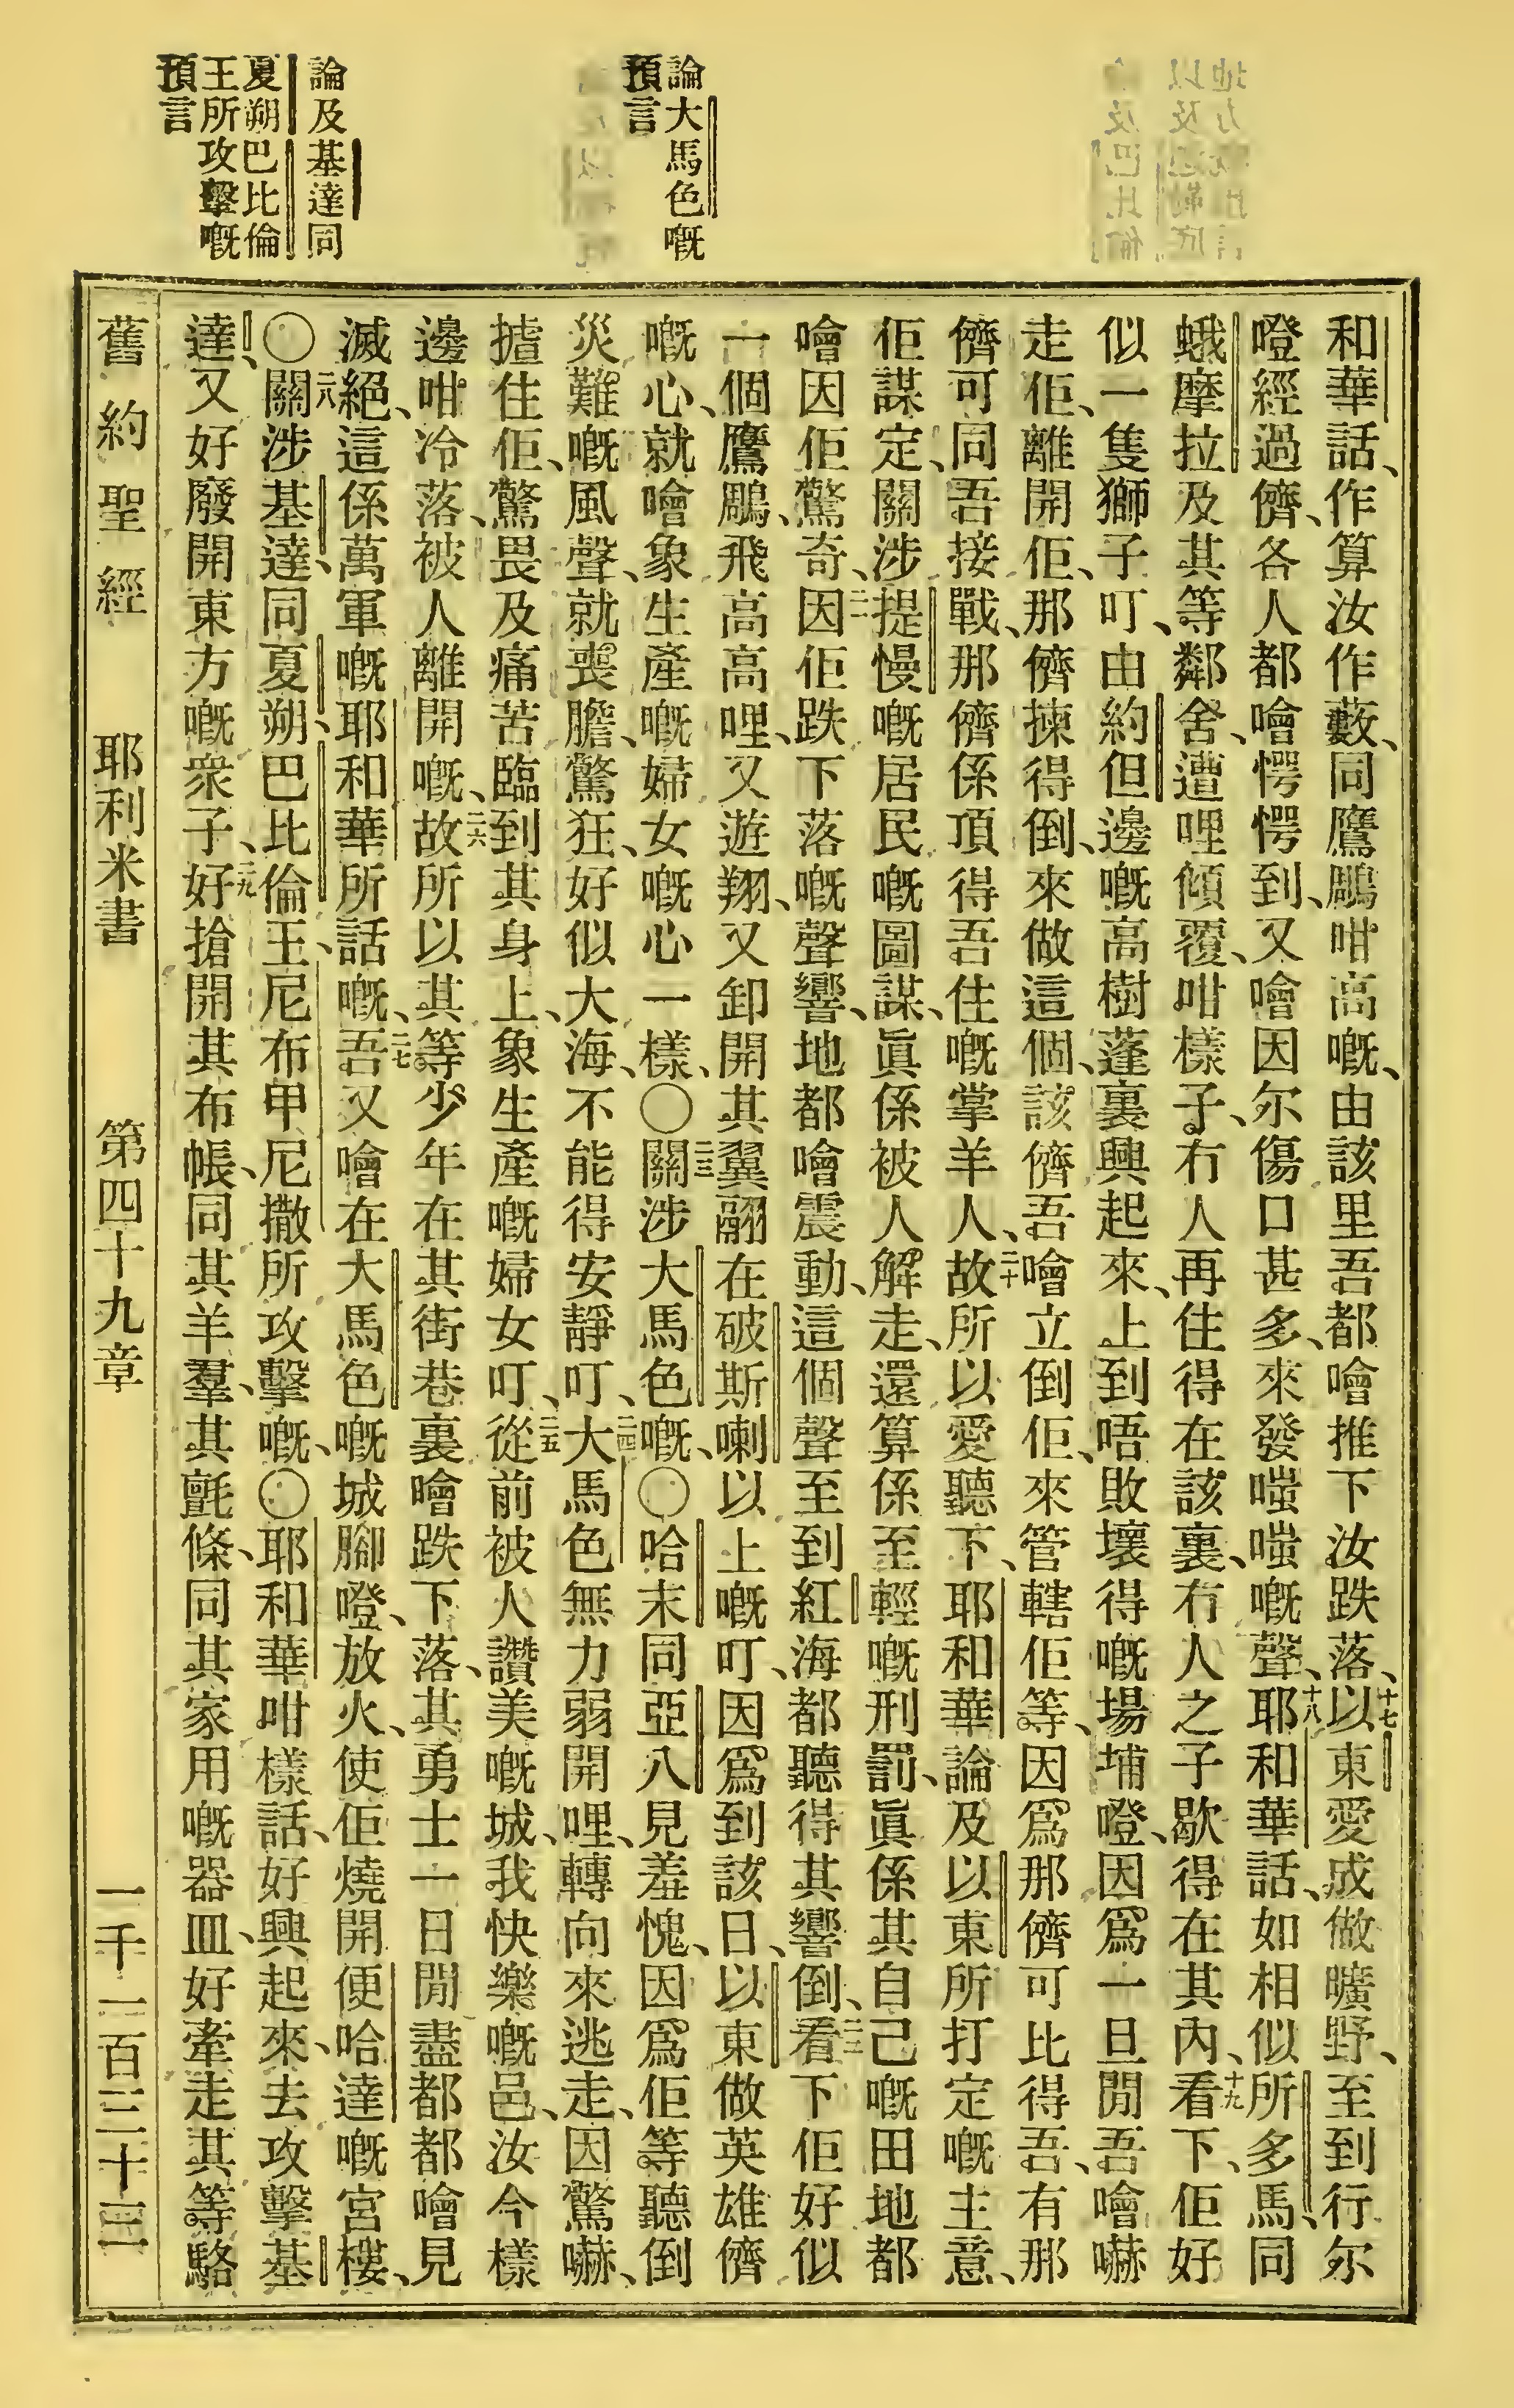 論大馬色嘅
預言
論及基達同
夏朔巴比倫
王所攻擊嘅
預言
和華話、作算汝作藪、同鷹鵰咁高嘅、由該里吾都噲推下汝跌落、十七以東愛成做曠野、至到行尔
噔經過儕、各人都噲愕愕到、又噲因尔傷口甚多、來發嗤嗤嘅聲、十八耶和華話、如相似所多馬、同
蛾摩拉及其等鄰舍、遭哩傾覆、咁樣子、冇人再住得在該裏、冇人之子歇得在其內、十九看下、佢好
似一隻獅子叮、由約但邊嘅高樹蓬裏興起來、上到唔敗壞得嘅場埔噔、因爲一旦閒吾噲嚇
走佢、離開佢、那儕揀得倒、來做這個、該儕吾噲立倒佢、來管轄佢等、因爲那儕可比得吾、有那
儕可同吾接戰、那儕係頂得吾住嘅掌羊人、二十故所以愛聽下、耶和華論及以東所打定嘅主意、
佢謀定、關涉提慢嘅居民嘅圖謀、眞係被人解走、還算係至輕嘅刑罰、眞係其自己嘅田地都
噲因佢驚奇、二一因佢跌下落嘅聲響、地都噲震動、這個聲至到紅海都聽得其響倒、二二看下佢好似
一個鷹鵰、飛高高哩、又遊翔、又卸開其翼翮在破斯喇以上嘅叮、因爲到該日、以東做英雄儕
嘅心、就噲象生產嘅婦女嘅心一樣、〇二三關涉大馬色嘅、〇哈末同亞八見羞愧、因爲佢等聽倒
災難嘅風聲、就喪膽、驚狂、好似大海、不能得安靜叮、二四大馬色無力弱開哩、轉向來逃走、因驚嚇、
揸住佢、驚畏及痛苦臨到其身上、象生產嘅婦女叮、二五從前被人讚美嘅城、我快樂嘅邑、汝今樣
邊咁冷落、被人離開嘅、二六故所以其等少年在其街巷裏噲跌下落、其勇士一日閒盡都都噲見
滅絕、這係萬軍嘅耶和華所話嘅、二七吾又噲在大馬色嘅城腳噔、放火、使佢燒開便哈達嘅宮樓、
〇二八關涉基達、同夏朔、巴比倫王、尼布甲尼撒所攻擊嘅、〇耶和華咁樣話、好興起來、去攻擊基
達、又好廢開東方嘅衆子、二九好搶開其布帳、同其羊羣、其氈條、同其家用嘅器皿、好牽走其等駱
舊約聖經 耶利米書 第四十九章 一千一百三十三